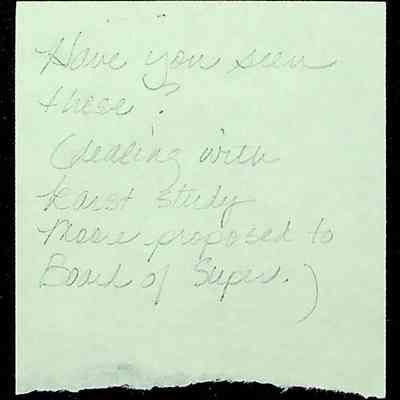 Have you seen
these?
(dealing with
karst study
Moore proposed to
Board of Superv.)